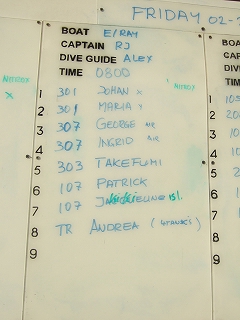 FRIDAY 02-
BOAT E/RAY
CAPTAIN RJ
DIVE GUIDE ALEX
TIME 0800
NITROX NITROX
1 301 JOHAN x
2 301 MARIA
3 307 GEORGE
4 307 INGRID
5 303 TAKEFUMI
6 107 PATRICK
7 107
8 TR ANDREA
9
BOA
CAP
DIVE
TIM
1
2
3
4
5
6
7
8
9